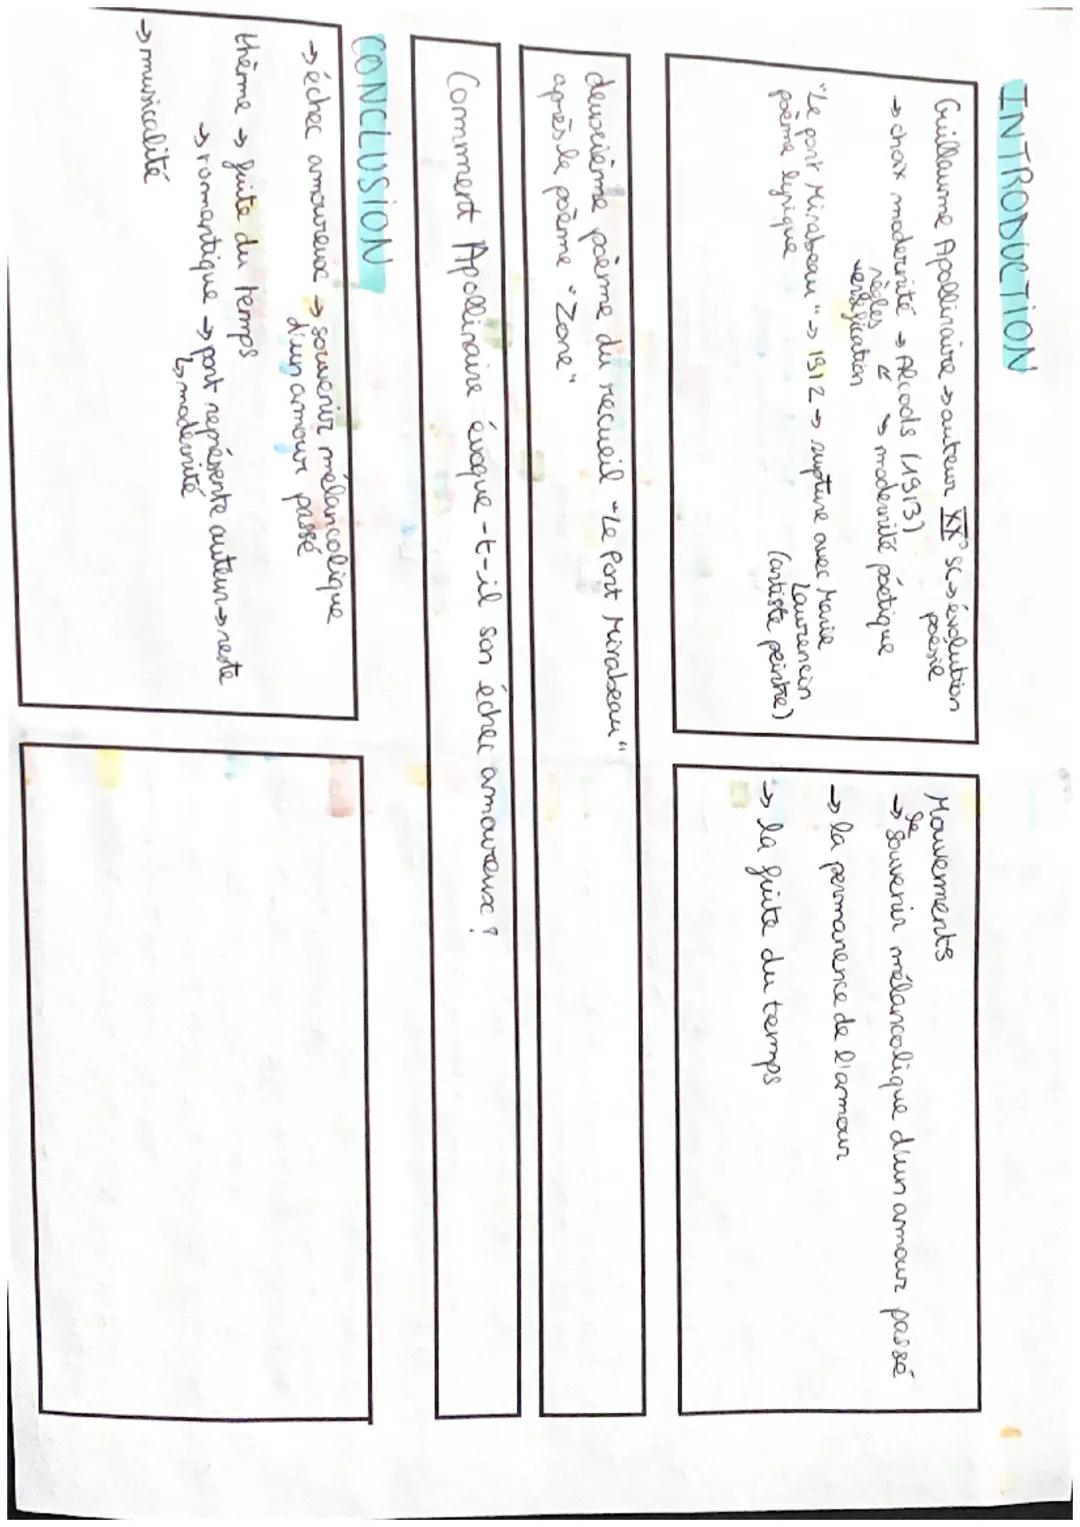 INTRODUCTION
Guillaume Apollinaire → auteur XX° sc → évolution
poesie
→ choix modernité → Alcools (1913)
règles ↙ ↘ modernité poétique
versification
"Le pont Mirabeau" → 1912 → rupture avec Marie
poème lyrique Laurencin
(artiste peintre)
Mouvements
→ le souvenir mélancolique d'un amour passé
→ la permanence de l'amour
→ la fuite du temps
deuxième poème du recueil "Le Pont Mirabeau"
après le poème "Zone"
Comment Apollinaire évoque-t-il son échec amoureux ?
CONCLUSION
→ échec amoureux → souvenir mélancolique
d'un amour passé
thème → fuite du temps
→ romantique → pont représente auteur → reste
↳ modernité
→ musicalité